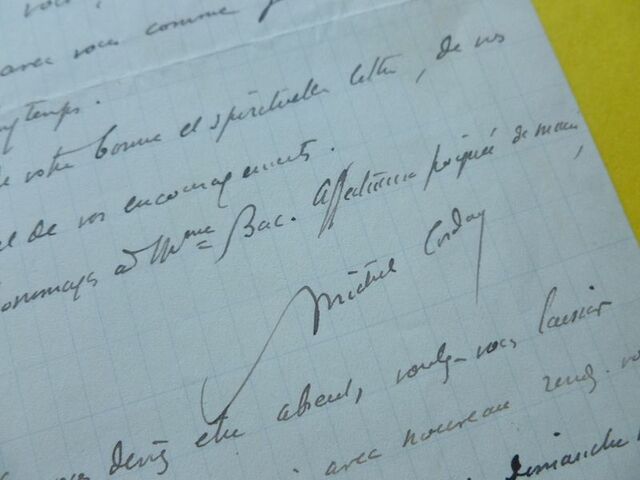 vous,
avec vous comme
longtemps.
votre bonne et spirituelle lettre, de vos
et de vos encouragements.
hommages à Mme Bac. Affectueuse poignée de main,
Michel Corday
devez être absent, voulez-vous laisser
avec nouveau rendez-vo
dimanche